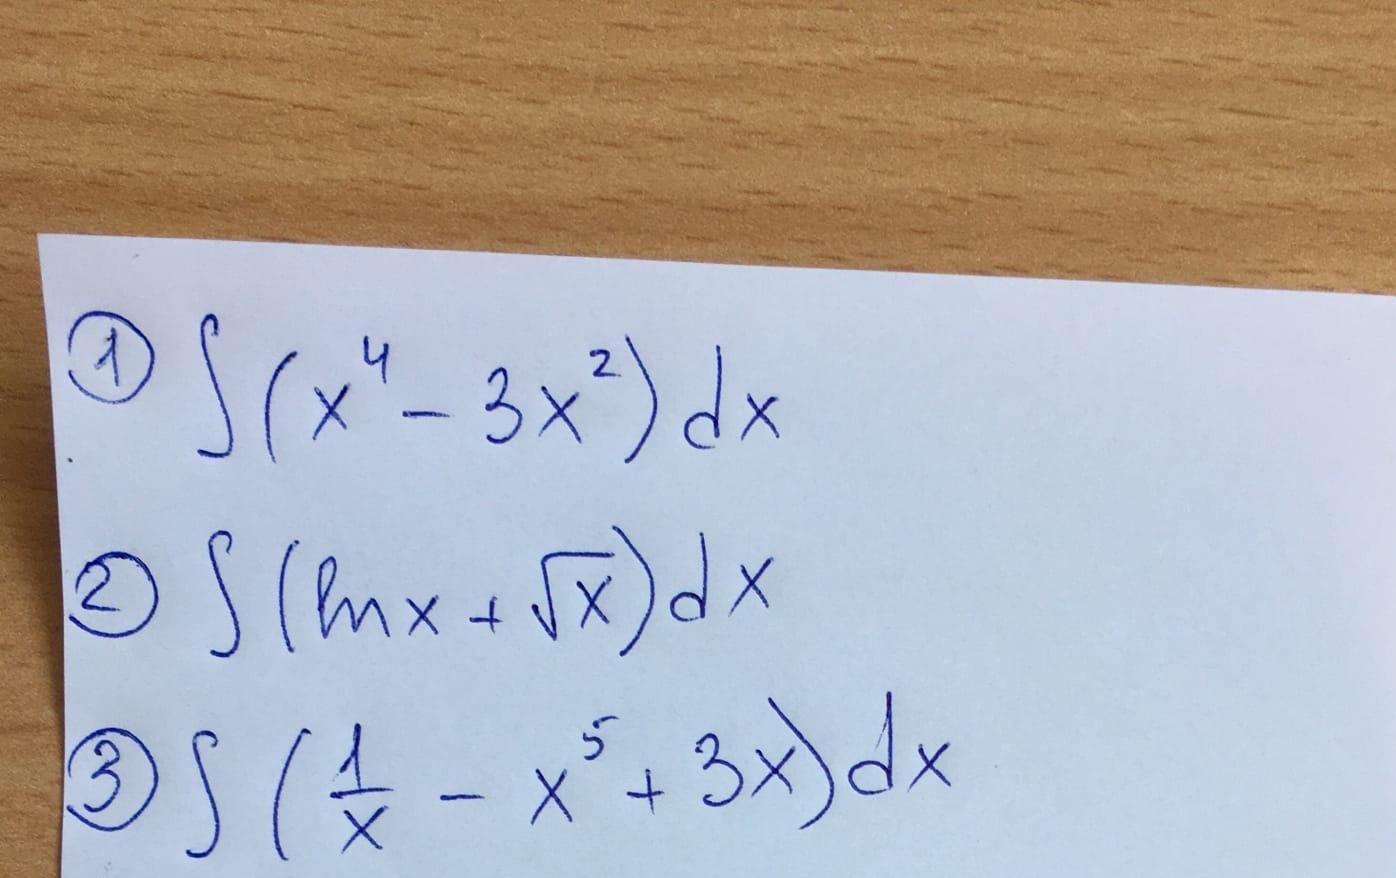 ① ∫(x⁴ - 3x²) dx
② ∫(ln x + √x) dx
③ ∫(1/x - x⁵ + 3x) dx